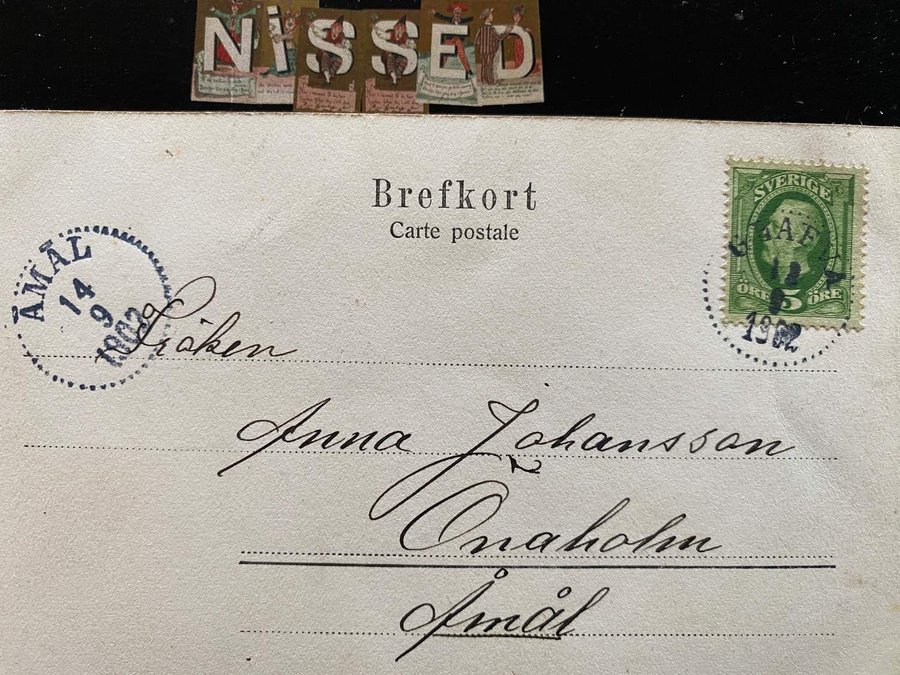 NiSSED
Brefkort
Carte postale
SVERIGE
ÖRE 5 ÖRE
12
1902
ÅMÅL
14
9
1902
Fröken
Anna Johansson
Onaholm
Åmål